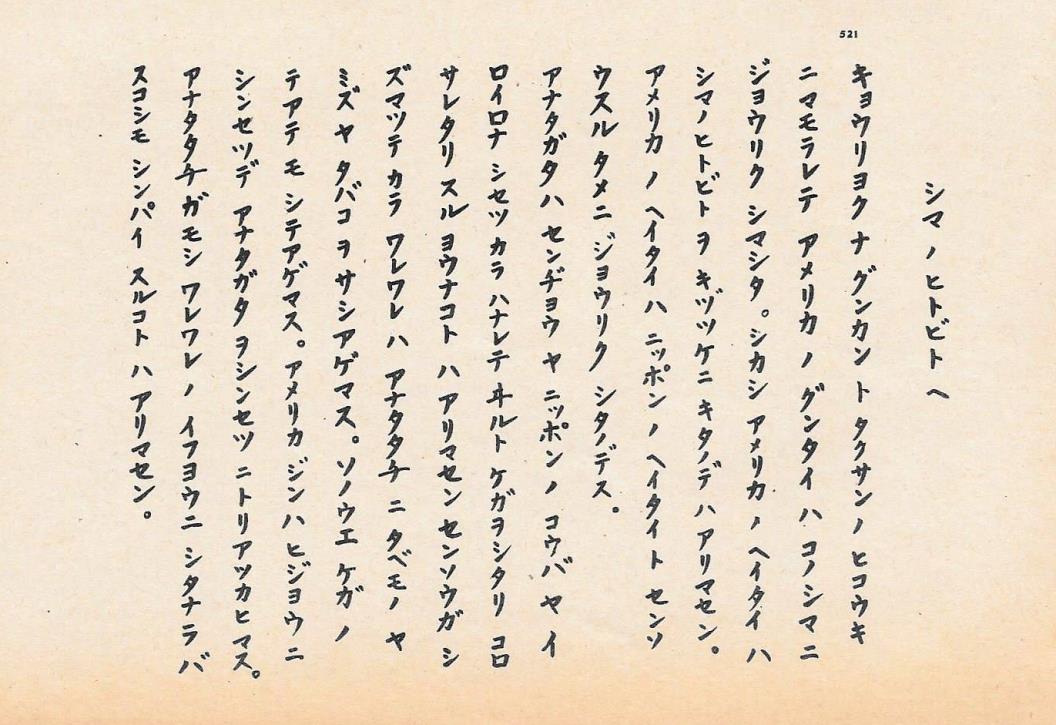 521
シマ ノ ヒトビト ヘ
キョウリヨク ナ グンカン ト タクサン ノ ヒコウキ
ニ マモラレテ アメリカ ノ グンタイ ハ コノシマニ
ジョウリク シマシタ。シカシ アメリカ ノ ヘイタイ ハ
シマノヒトビト ヲ キヅツケニ キタノデ ハ アリマセン。
アメリカ ノ ヘイタイ ハ ニッポン ノ ヘイタイト センソ
ウスル タメニ ジョウリク シタノデス。
アナタガタ ハ センヂョウ ヤ ニッポン ノ コウバ ヤ イ
ロイロナ シセツ カラ ハナレテ ヰルト ケガヲシタリ コロ
サレタリ スル ヨウナコト ハ アリマセン センソウガ シ
ズマツテ カラ ワレワレ ハ アナタタチ ニ タベモノ ヤ
ミズ ヤ タバコ ヲ サシアゲマス。ソノウエ ケガ ノ
テアテ モ シテアゲマス。アメリカ ジンハ ヒジョウ ニ
シンセツデ アナタガタ ヲシンセツ ニトリアツカヒ マス。
アナタタチ ガモシ ワレワレ ノ イフヨウニ シタナラバ
スコシモ シンパイ スルコト ハ アリマセン。